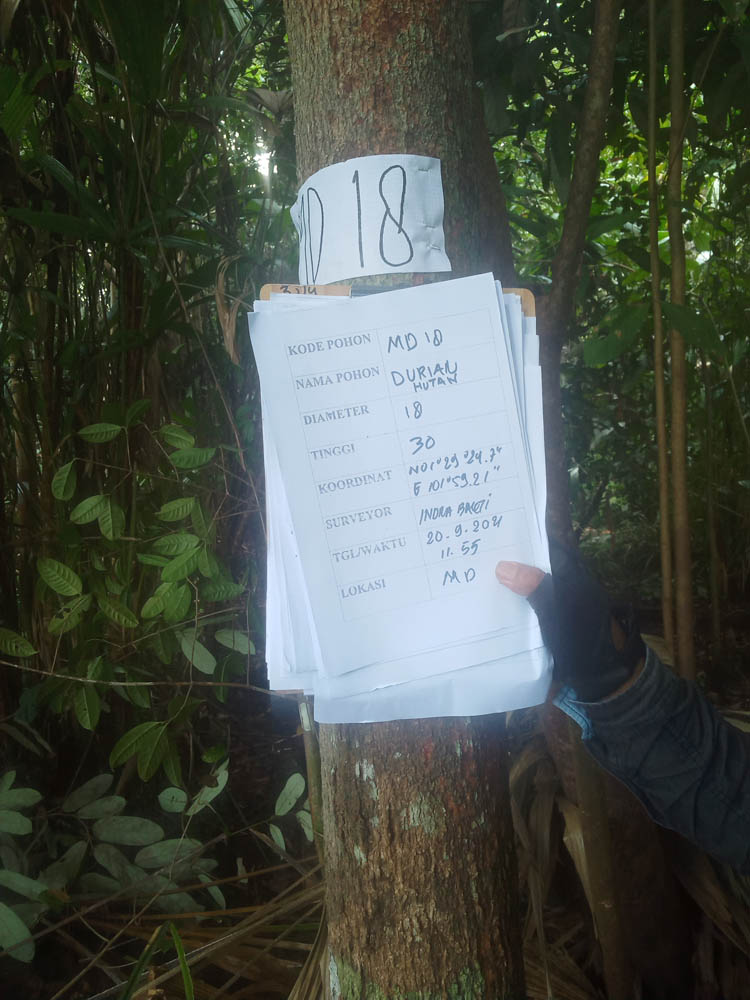 MD 18
KODE POHON MD 18
NAMA POHON DURIAN
HUTAN
DIAMETER 18
TINGGI 30
KOORDINAT N01°29'24.7"
E 101°59.21"
SURVEYOR INDRA BAKTI
TGL/WAKTU 20.9.2021
11.55
LOKASI MD